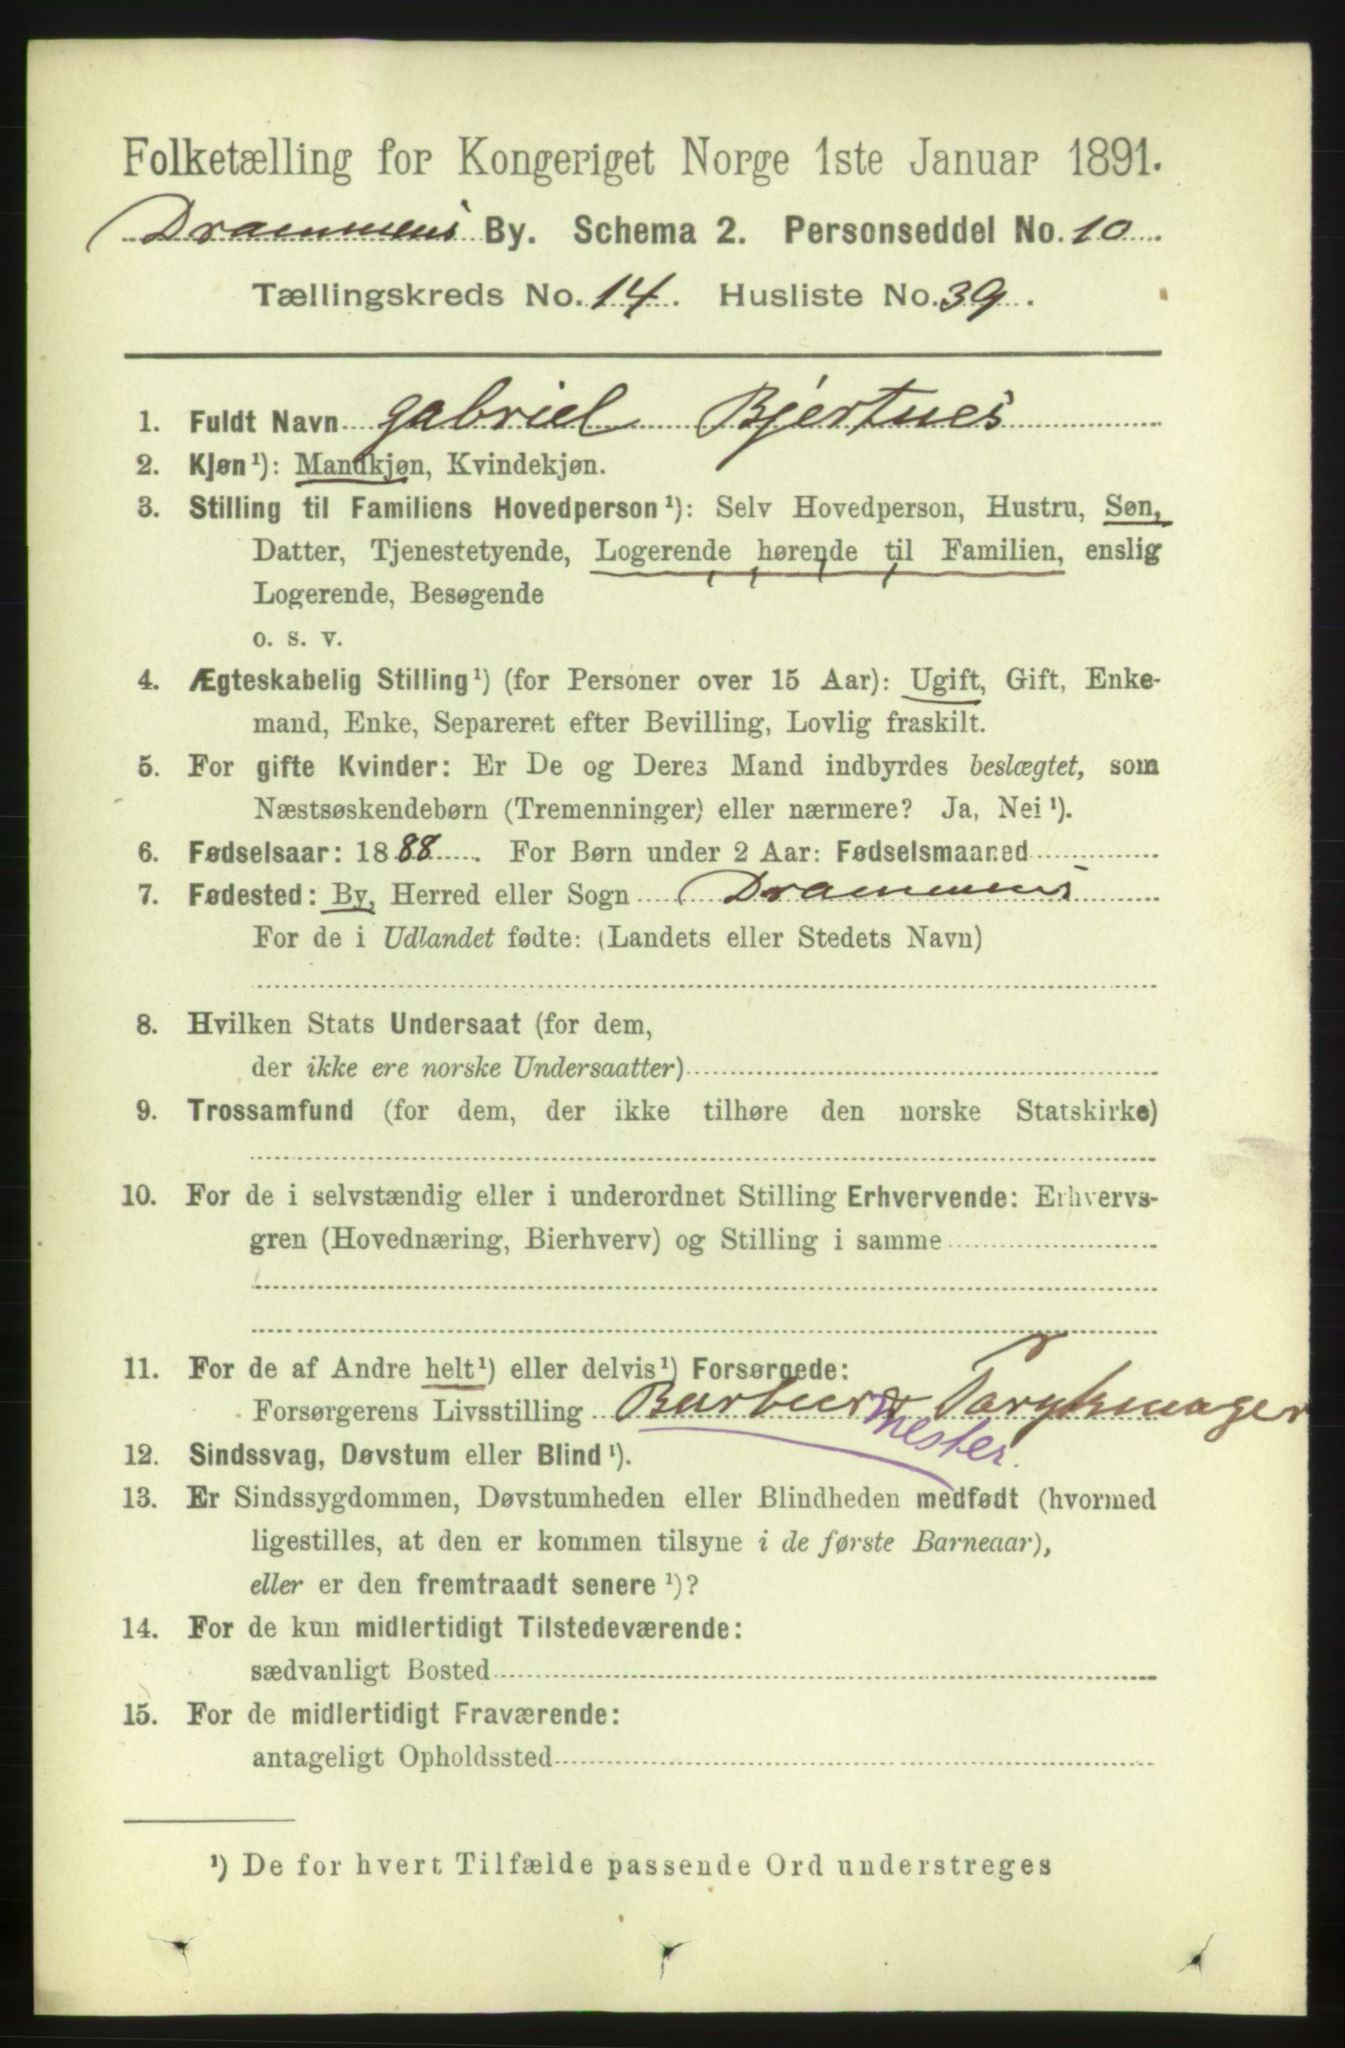 Folketælling for Kongeriget Norge 1ste Januar 1891.
Drammens By. Schema 2. Personseddel No. 10
Tællingskreds No. 14. Husliste No. 39.
1. Fuldt Navn Gabriel Bjertnes
2. Kjøn¹): Mandkjøn, Kvindekjøn.
3. Stilling til Familiens Hovedperson¹): Selv Hovedperson, Hustru, Søn,
Datter, Tjenestetyende, Logerende hørende til Familien, enslig
Logerende, Besøgende
o. s. v.
4. Ægteskabelig Stilling¹) (for Personer over 15 Aar): Ugift, Gift, Enke-
mand, Enke, Separeret efter Bevilling, Lovlig fraskilt.
5. For gifte Kvinder: Er De og Deres Mand indbyrdes beslægtet, som
Næstsøskendebørn (Tremenninger) eller nærmere? Ja, Nei¹).
6. Fødselsaar: 1888. For Børn under 2 Aar: Fødselsmaaned
7. Fødested: By, Herred eller Sogn Drammens
For de i Udlandet fødte: (Landets eller Stedets Navn)
8. Hvilken Stats Undersaat (for dem,
der ikke ere norske Undersaatter)
9. Trossamfund (for dem, der ikke tilhøre den norske Statskirke)
10. For de i selvstændig eller i underordnet Stilling Erhvervende: Erhvervs-
gren (Hovednæring, Bierhverv) og Stilling i samme
11. For de af Andre helt¹) eller delvis¹) Forsørgede:
Forsørgerens Livsstilling Barbeer & Parykmager
mester.
12. Sindssvag, Døvstum eller Blind¹).
13. Er Sindssygdommen, Døvstumheden eller Blindheden medfødt (hvormed
ligestilles, at den er kommen tilsyne i de første Barneaar),
eller er den fremtraadt senere¹)?
14. For de kun midlertidigt Tilstedeværende:
sædvanligt Bosted
15. For de midlertidigt Fraværende:
antageligt Opholdssted
¹) De for hvert Tilfælde passende Ord understreges